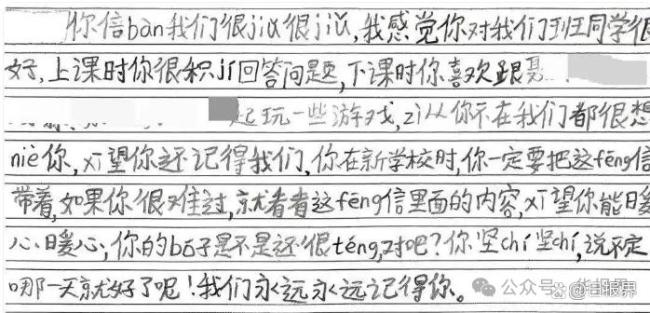 你倍bàn我们很jiǔ很jiǔ,我感觉你对我们班同学很
好,上课时你很积jí回答问题,下课时你喜欢跟
起玩一些游戏,zì从你不在我们都很想
niè你,xī望你还记得我们,你在新学校时,你一定要把这fēng信
带着,如果你很难过,就看看这fēng信里面的内容,xī望你能暖
心暖心,你的bó子是不是还很téng,对吧?你坚chí坚chí,说不定
哪一天就好了呢!我们永远永远记得你。
公众号